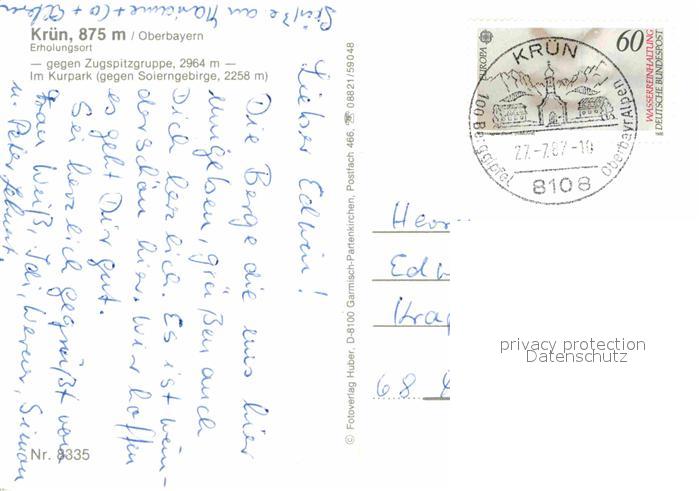 Grüße an Marianne + Co + Eltern
Krün, 875 m / Oberbayern
Erholungsort
— gegen Zugspitzgruppe, 2964 m —
Im Kurpark (gegen Soierngebirge, 2258 m)
Lieber Edwin!
Die Berge die uns hier
umgeben, grüßen auch
Dich herzlich. Es ist wun-
derschön hier. Wir hoffen
es geht Dir gut.
Sei herzlich gegrüßt von
Frau Weiß, Werner, Simon
u. Peter
Nr. 8335
© Fotoverlag Huber, D-8100 Garmisch-Partenkirchen, Postfach 466, ☏ 08821/59048
EUROPA
60
WASSERREINHALTUNG
DEUTSCHE BUNDESPOST
KRÜN
100 Berggipfel
Oberbayr Alpen
27.-7.87-10
8108
Herr
Edw
Kra
68
privacy protection
Datenschutz